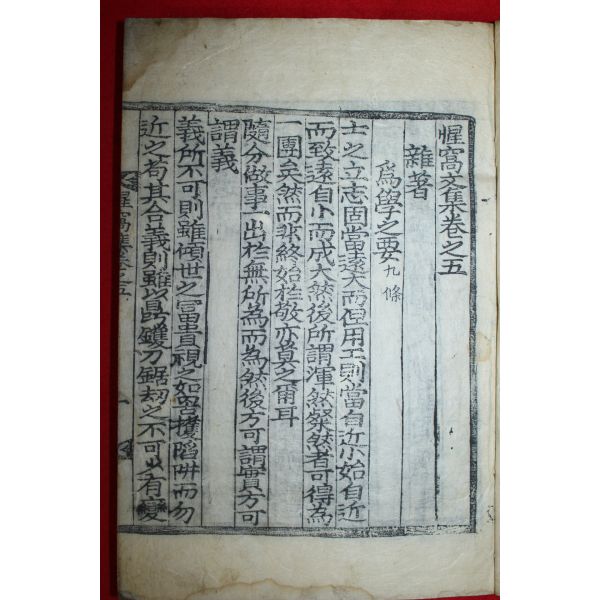 惺窩文集卷之五
雜著
爲學之要九條
士之立志固當遠大而但用工則當自近小始自近
而致遠自小而成大然後所謂渾然粲然者可得爲
一團矣然而非終始於敬亦莫之爾耳
隨分做事一出於無所爲而爲然後方可謂實方可
謂義
義所不可則雖傾世之富貴視之如罟擭陷阱而勿
近之苟其合義則雖以鼎鑊刀鋸劫之不可少有變
惺窩集卷之五